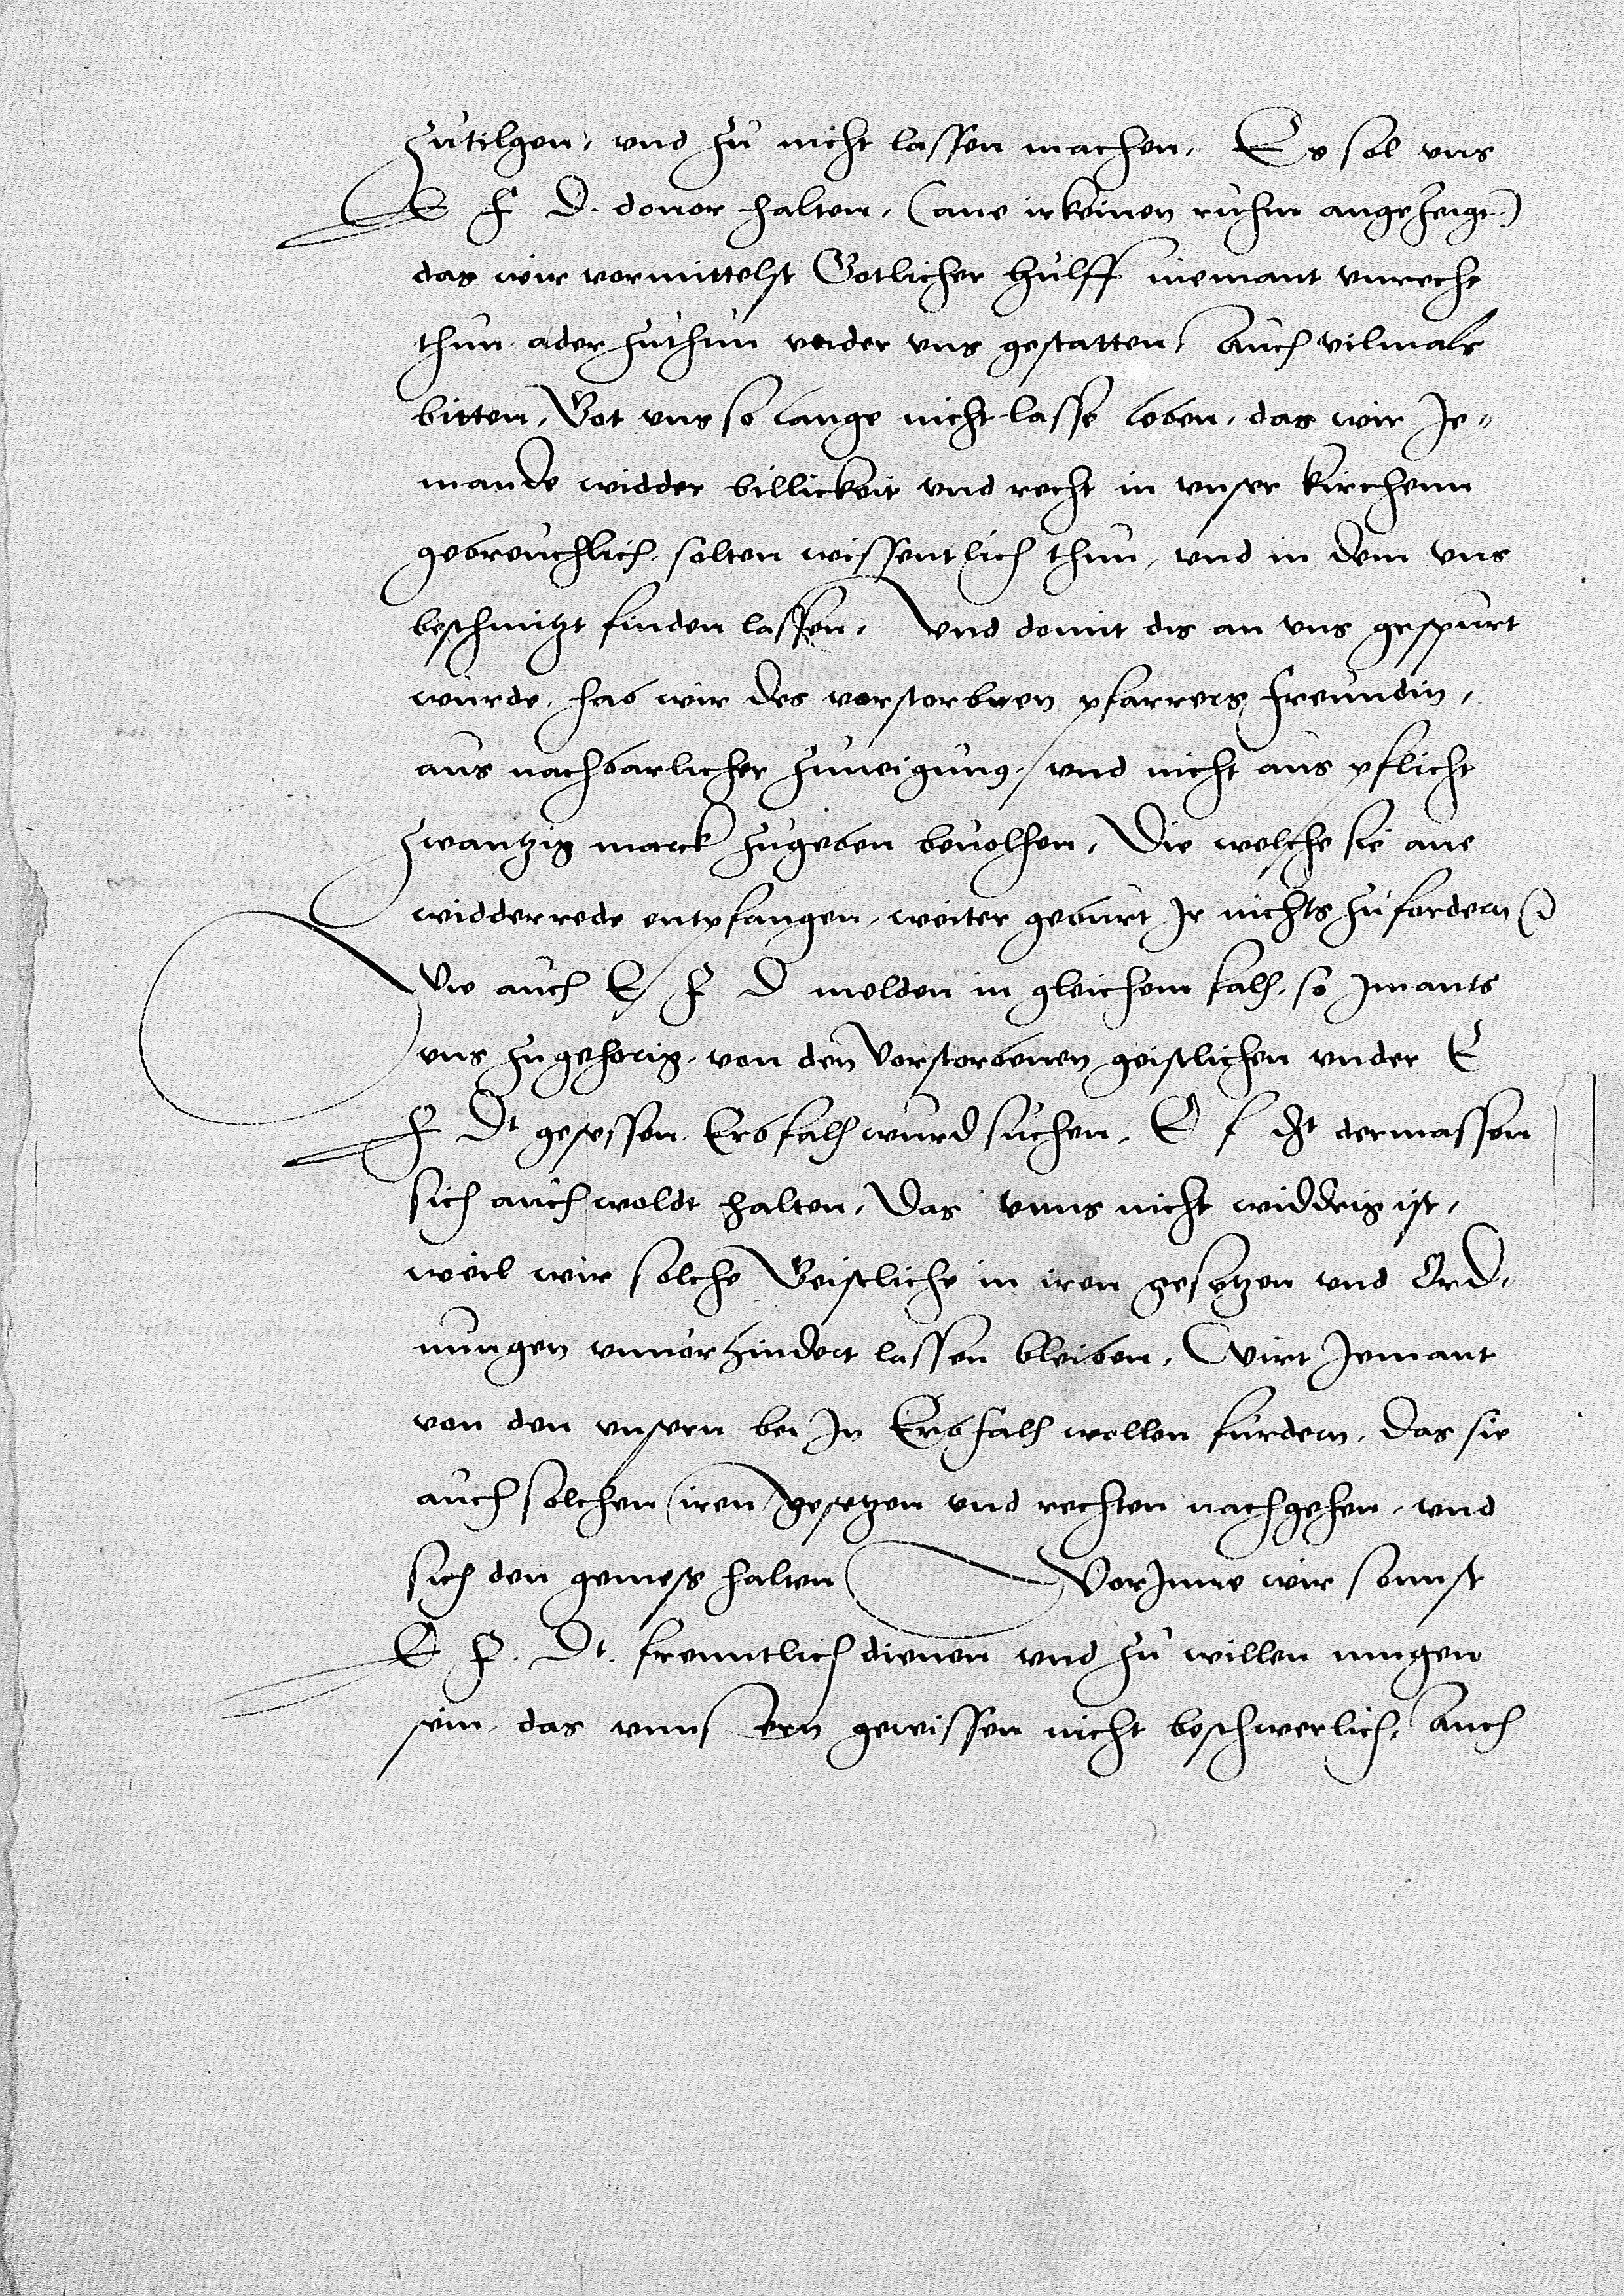 zutilgen, vnd zu nicht lassen machen, Es sol vns
E F D. douor halten, (ane irkeinen ruhm angezeigt)
das wir vormittelst Gotlicher hulff niemant vnrecht
thun ader zuthun vnder vns gestatten, Auch vilmals
bitten, Got vns so lange nicht lasse leben, das wir Je-
mande widder billickeit vnd recht in vnser kirchenn
gebreuchlich, solten wissentlich thun, vnd in dem vns
beschmitzt finden lassen, Vnd domit dis an vns gespurt
wurde, hab wir des vorstorbnen pfarrers freundin,
aus nachbarlicher zuneigung, vnd nicht aus pflicht
zwantzig marck zugeben beuolhen, Die welche sie ane
widderrede entpfangen, weiter geburt Jr nichts zufordern
Wie auch E F D melden in gleichem fall, so Jmants
vns zugehorig, von den Vorstorbenen geistlichen vnder E
F Dt gesessen, Erbfall wurd suchen, E f dt dermassen
sich auch woldt halten, Das vnns nicht widdrig ist,
weil wir solche Geistliche in iren gesetzen vnd Ord-
nungen vnuorhindert lassen bleiben, Wirt Jemant
von den vnsern bei Jn Erbfall wollen furdern, das sie
auch solchen iren gesetzen vnd rechten nachgehen, vnd
sich den gemess halten Worjnne wir sonnst
E F. Dt. freuntlich dienen vnd zu willen mugen
sein, das vnnsern gewissen nicht beschwerlich, Auch